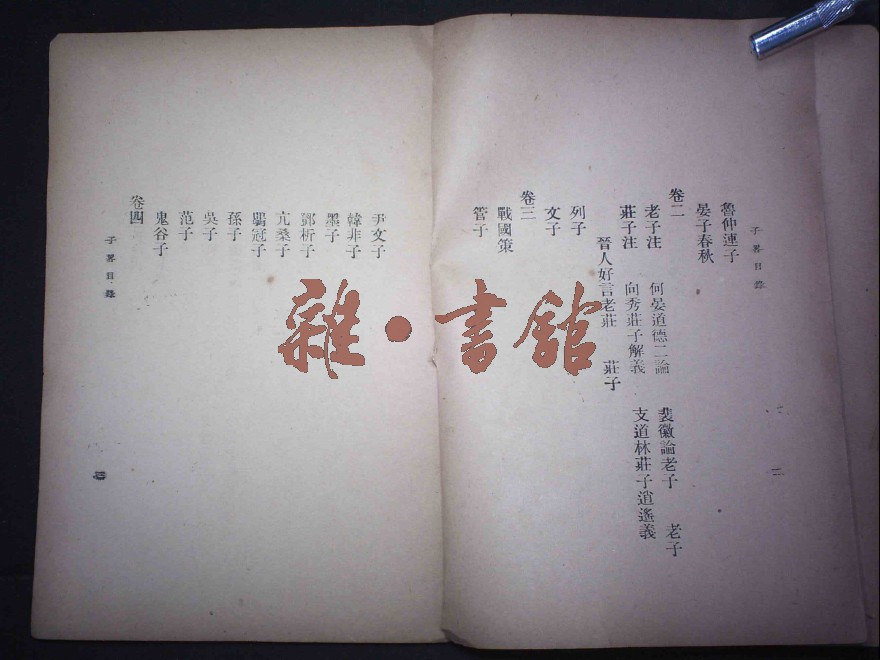 子畧目錄
二
魯仲連子
晏子春秋
卷二
老子注 何晏道德二論 裴徽論老子 老子
莊子注 向秀莊子解義 支道林莊子逍遙義
晉人好言老莊 莊子
列子
文子
卷三
戰國策
管子
尹文子
韓非子
墨子
鄧析子
亢桑子
鶡冠子
孫子
吳子
范子
鬼谷子
卷四
子畧目錄
雜·書館